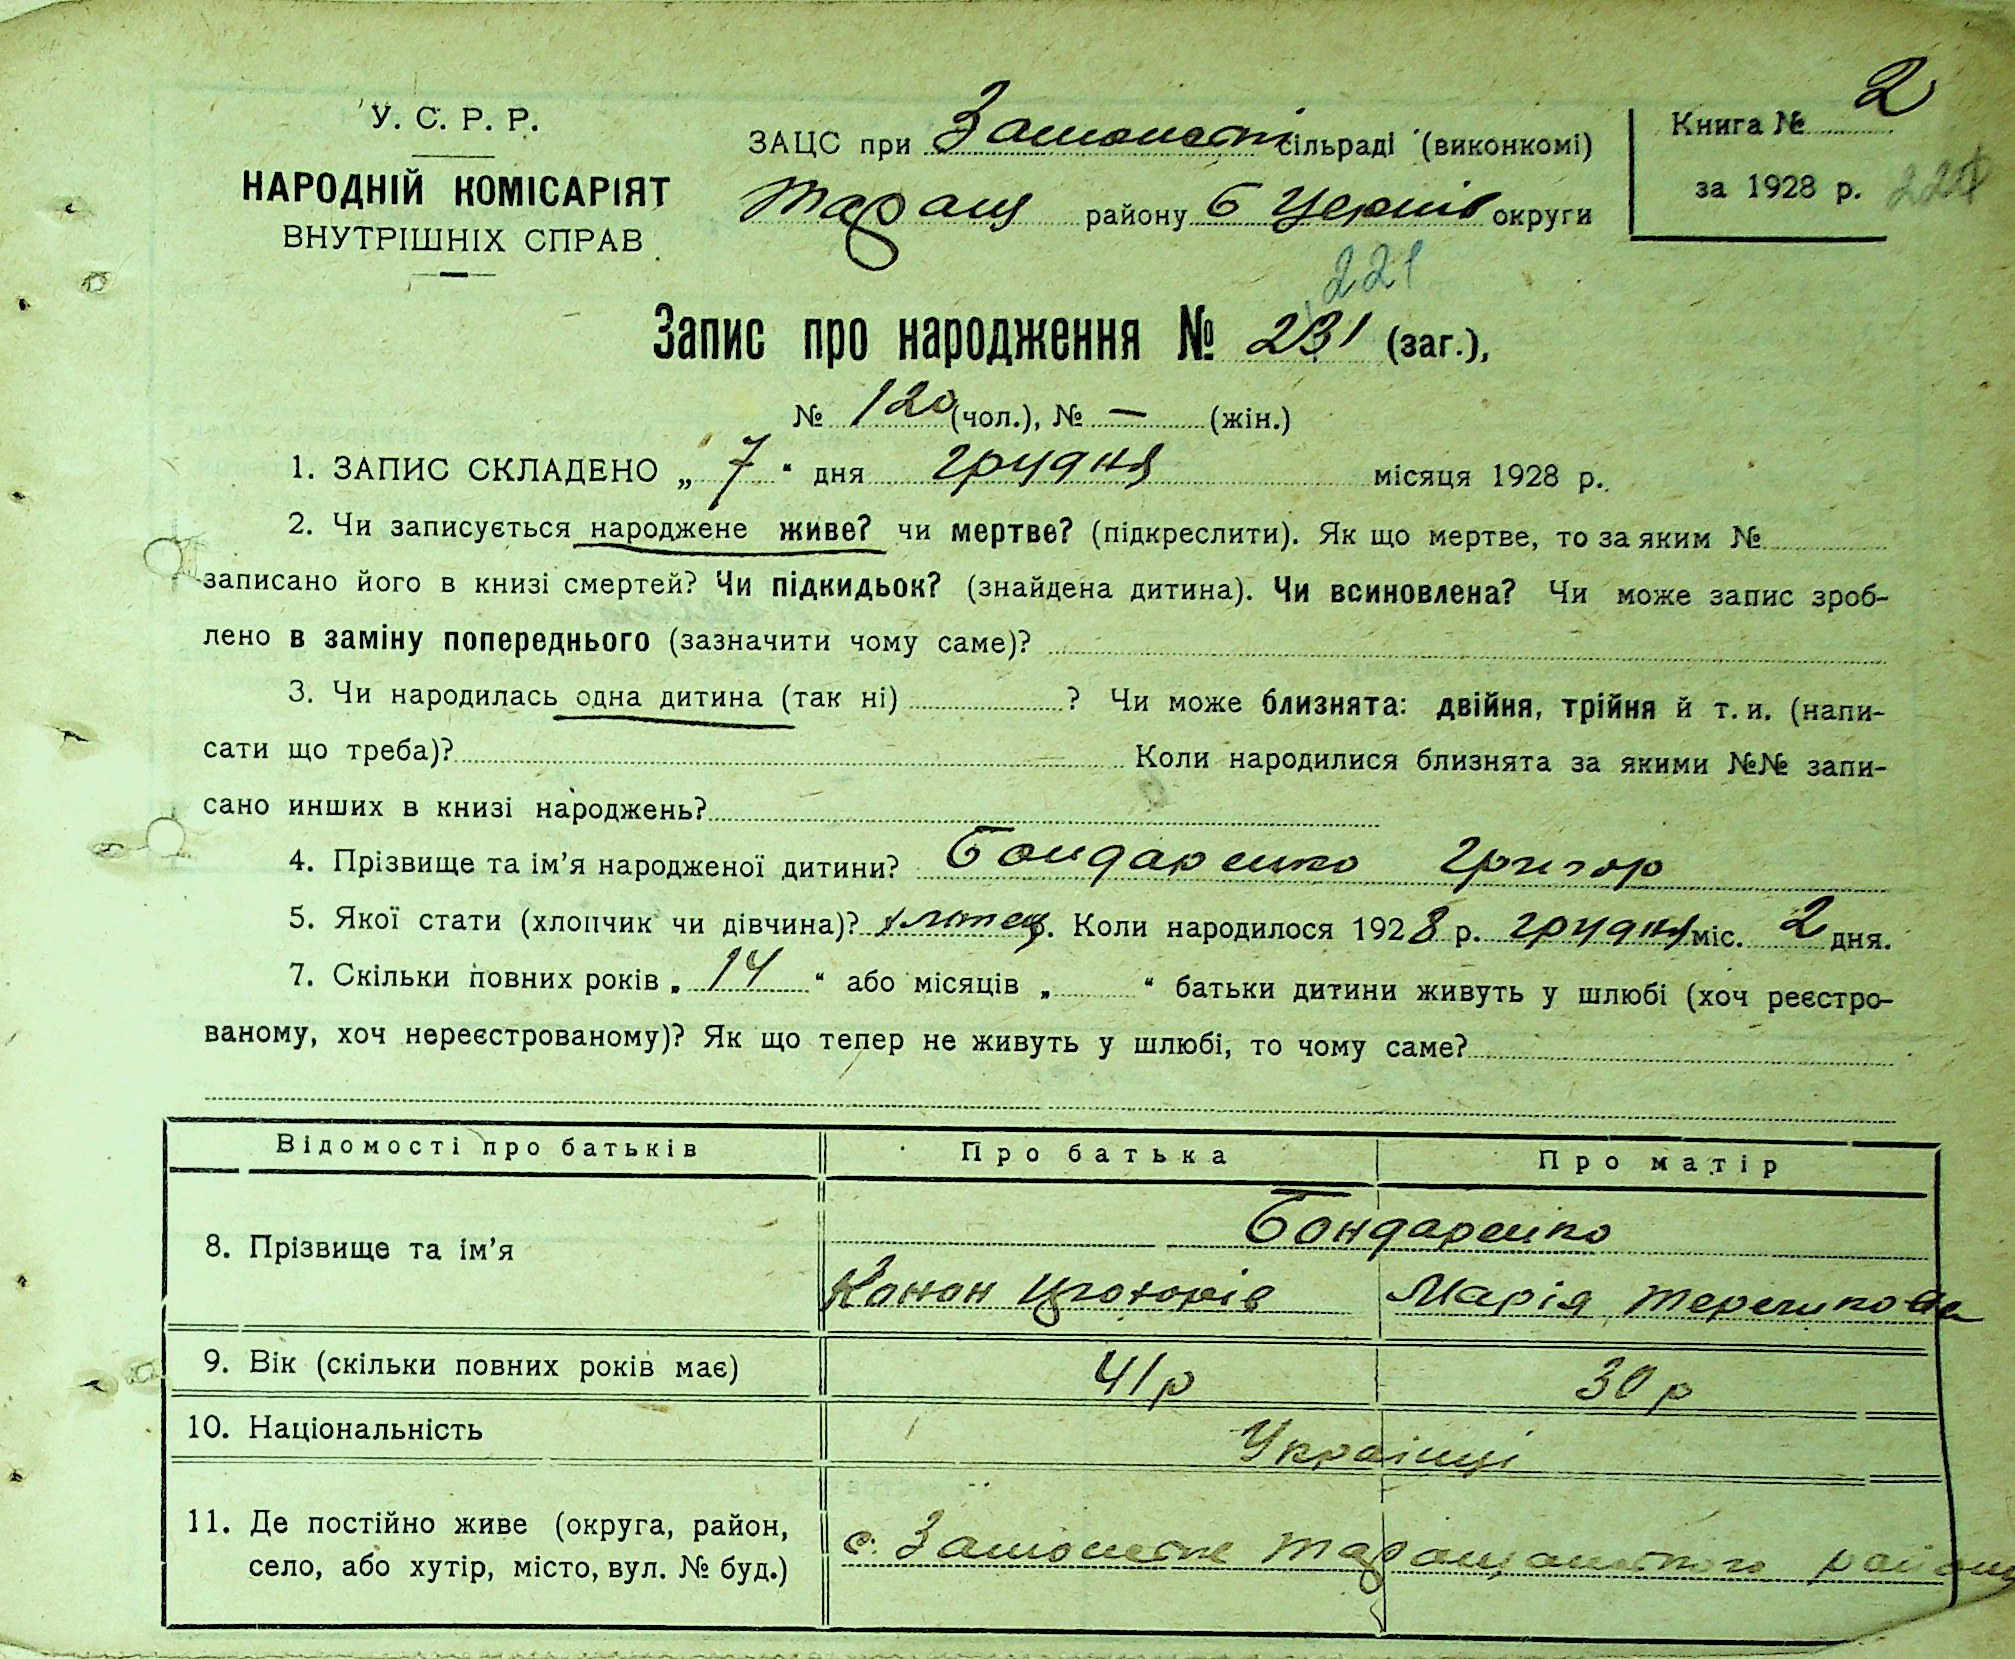 У. С. Р. Р.
НАРОДНІЙ КОМІСАРІЯТ
ВНУТРІШНІХ СПРАВ
ЗАЦС при сільраді (виконкомі)
Таращ району Б Церків округи
Книга № 2
за 1928 р.
221
Запис про народження № 231 (заг.),
№ 120 (чол.), № — (жін.)
1. ЗАПИС СКЛАДЕНО „ 7 “ дня грудня місяця 1928 р.
2. Чи записується народжене живе? чи мертве? (підкреслити). Як що мертве, то за яким №
записано його в книзі смертей? Чи підкидьок? (знайдена дитина). Чи всиновлена? Чи може запис зроб-
лено в заміну попереднього (зазначити чому саме)?
3. Чи народилась одна дитина (так ні) ? Чи може близнята: двійня, трійня й т. и. (напи-
сати що треба)? Коли народилися близнята за якими №№ запи-
сано инших в книзі народжень?
4. Прізвище та ім’я народженої дитини? Бондаренко Григор
5. Якої стати (хлопчик чи дівчина)? хлопец. Коли народилося 1928 р. грудня міс. 2 дня.
7. Скільки повних років „ 14 “ або місяців „ “ батьки дитини живуть у шлюбі (хоч реєстро-
ваному, хоч нереєстрованому)? Як що тепер не живуть у шлюбі, то чому саме?
Відомості про батьків Про батька Про матір
Бондаренко
8. Прізвище та ім’я
Конон Марія
9. Вік (скільки повних років має) 41 р 30 р
10. Національність Українці
11. Де постійно живе (округа, район,
село, або хутір, місто, вул. № буд.)
с. Таращанського району